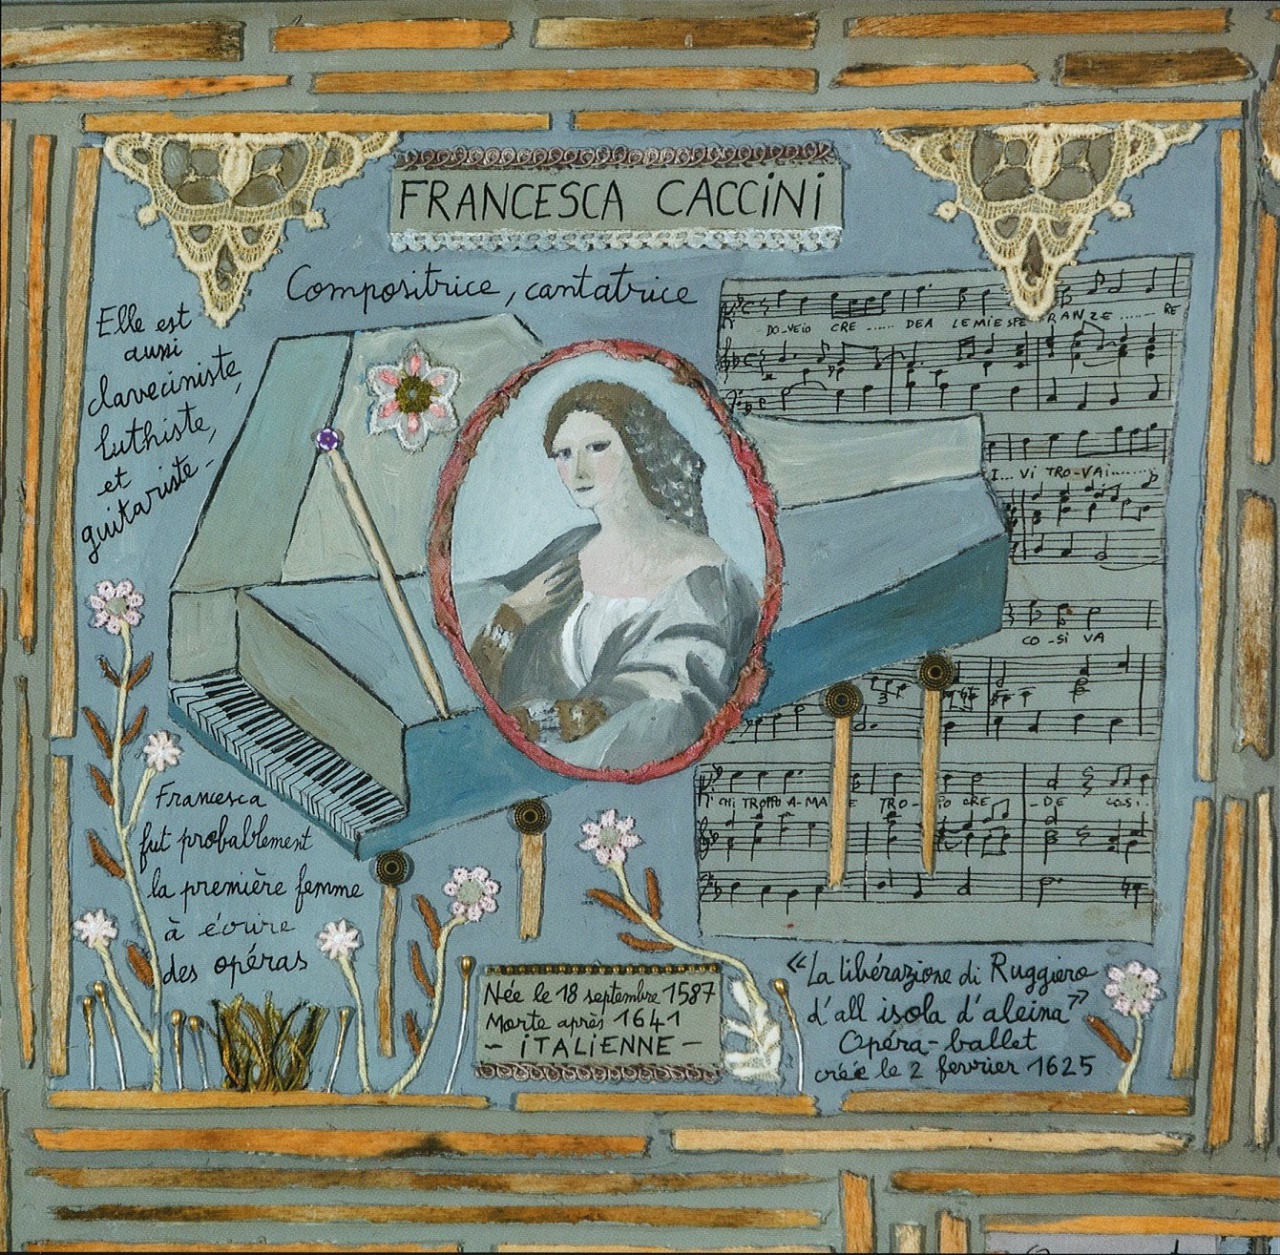 FRANCESCA CACCiNi
Compositrice, cantatrice
Elle est
aussi
claveciniste,
luthiste,
et
guitariste-
DO-VEiO CRE ...... DEA LEMIESPE RANZE ........ RE
I... Vi TRO-VAi........
CO-Si VA
CHi TROPPO A-MA E TRO- iO CRE -DE COSi..
Francesca
fut probablement
la première femme
à écrire
des opéras
Née le 18 septembre 1587
Morte après 1641
- iTALiENNE -
"La libérazione di Ruggiero
d'all isola d'aleina"
Opéra-ballet
créé le 2 fevrier 1625